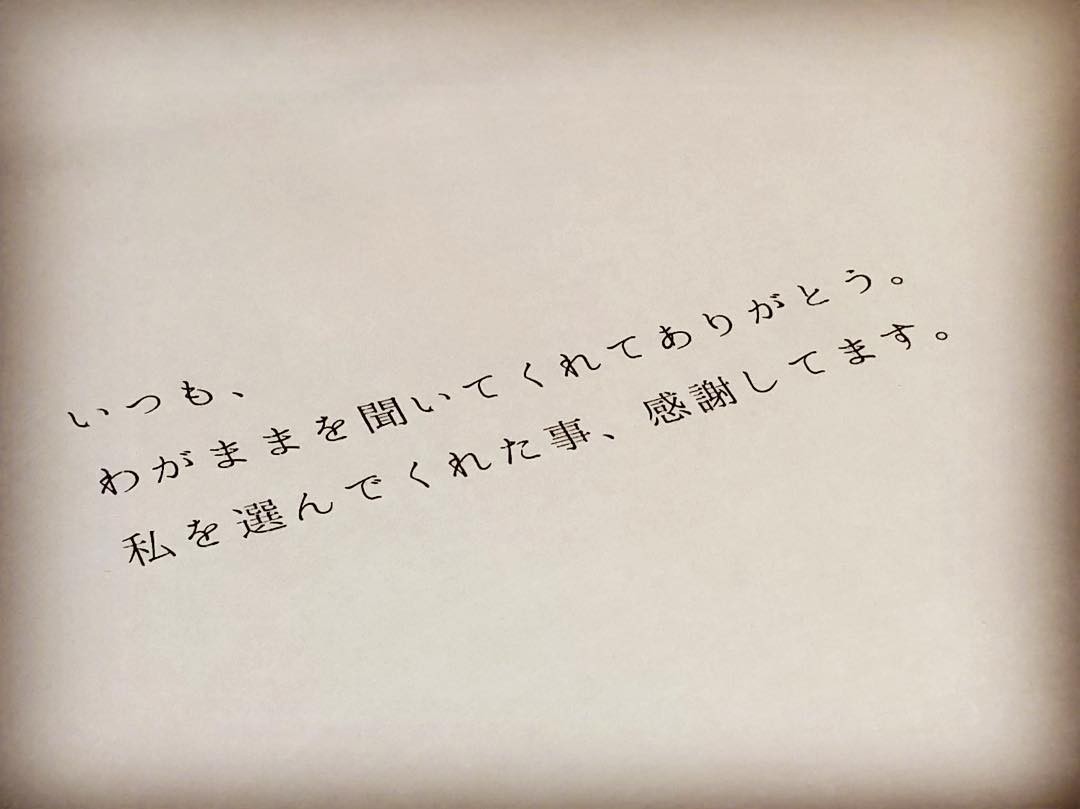 いつも、
わがままを聞いてくれてありがとう。
私を選んでくれた事、感謝してます。